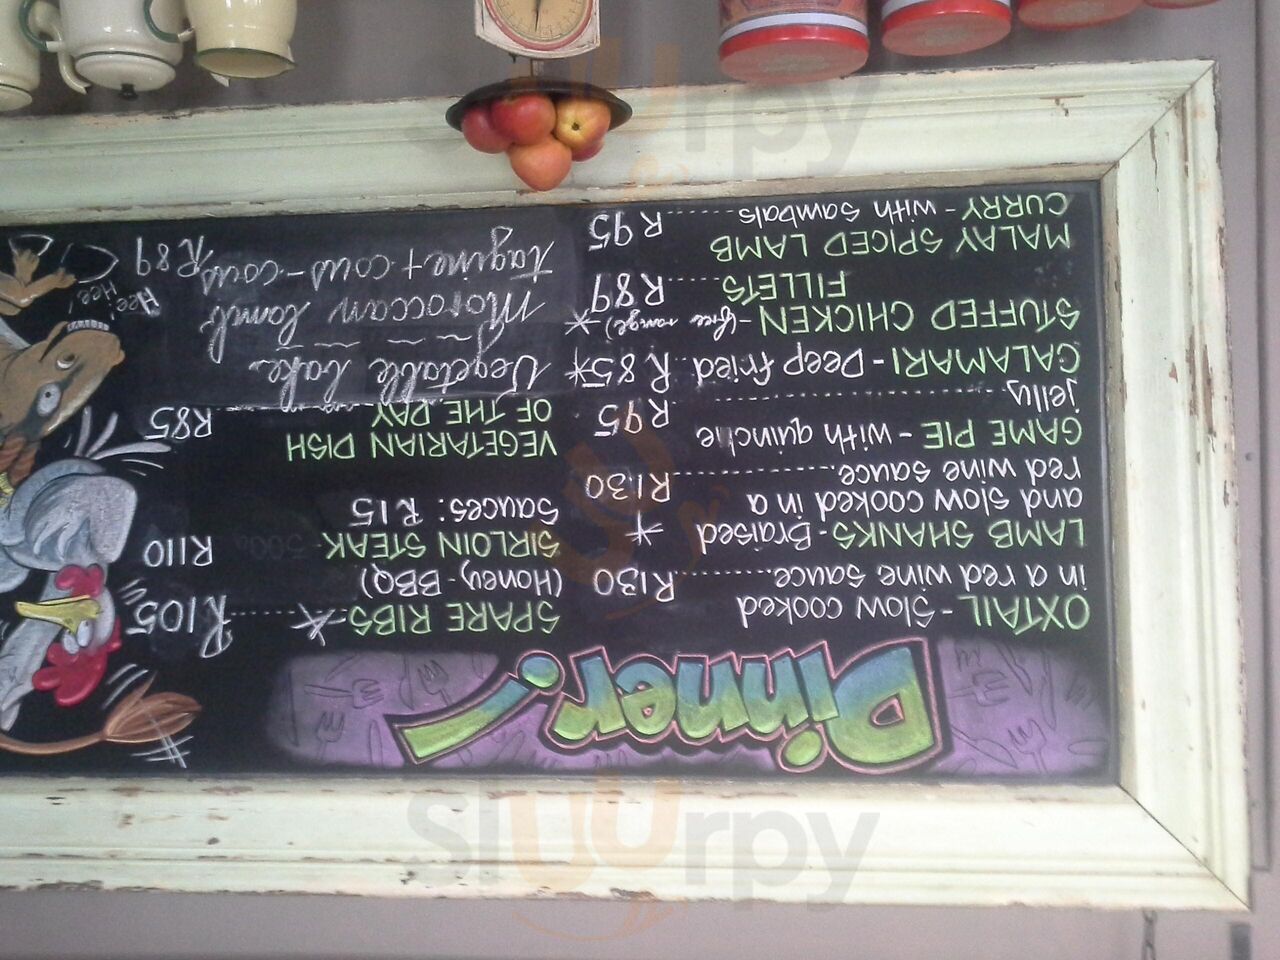 Dinner!
OXTAIL - Slow cooked
in a red wine sauce............ R130
LAMB SHANKS - Braised *
and slow cooked in a
red wine sauce............... R130
GAME PIE - with quinche R95
jelly........................
CALAMARI - Deep fried.. R85*
STUFFED CHICKEN - (free range) *
FILLETS........ R89
MALAY SPICED LAMB
CURRY - with sambals........ R95
SPARE RIBS - * ........ R105
(Honey - BBQ)
SIRLOIN STEAK R110
Sauces: R15
VEGETARIAN DISH
OF THE DAY ........ R85
Vegetable bake
Moroccan lamb
tagine + cous-cous R89
Hee
Hee!
sluurpy
sluurpy